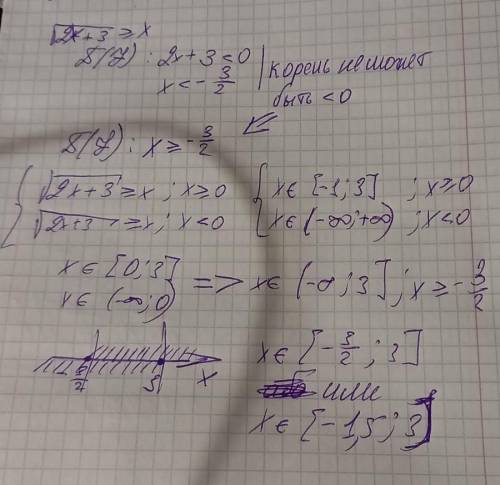 √2x+3 ≥ x
D(y): 2x+3<0
x < -3/2
корень не может
быть <0
D(y): x ≥ -3/2
{ √2x+3 ≥ x ; x ≥ 0
√2x+3 ≥ x ; x < 0
{ x ∈ [-1; 3] ; x ≥ 0
x ∈ (-∞; +∞) ; x < 0
x ∈ [0; 3]
x ∈ (-∞; 0)
=> x ∈ (-∞; 3] ; x ≥ -3/2
x
x ∈ [-3/2 ; 3]
или
x ∈ [-1,5; 3]